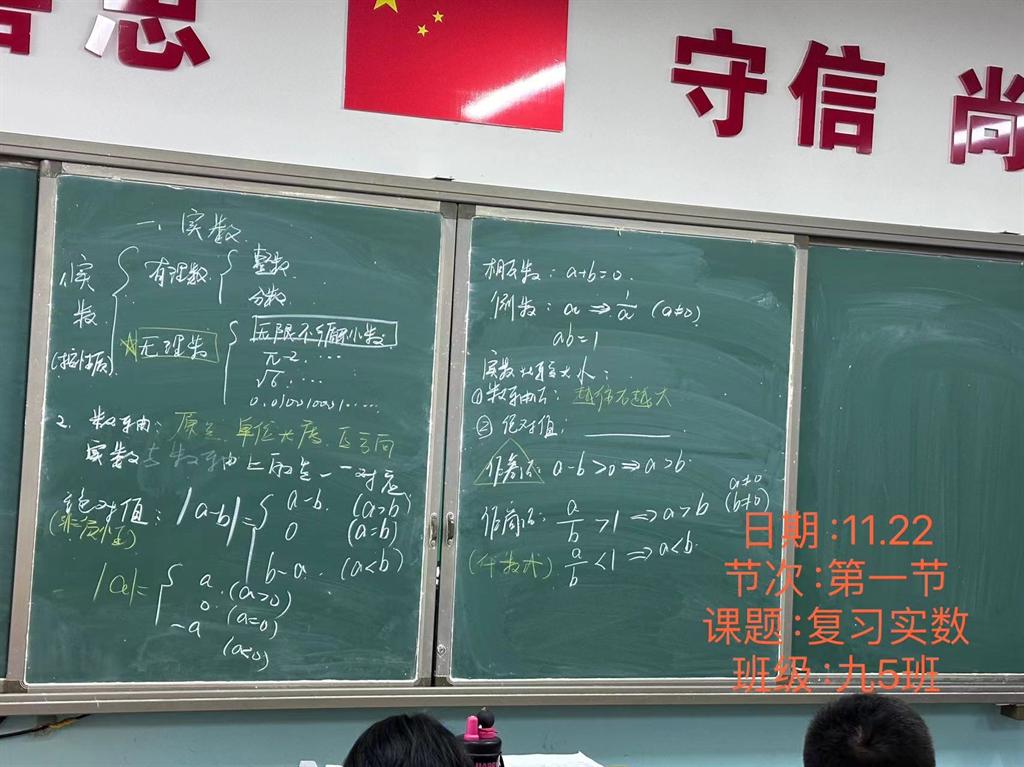 守信尚
一、实数
1、实数
(按性质)
有理数
整数
分数
☆无理数
无限不循环小数
π-2 ....
√6 ....
0.010010001.....
2. 数轴：原点 单位长度 正方向
实数与数轴上的点一一对应
绝对值：|a-b|=
(非负性)
a-b. (a>b)
0 (a=b)
b-a. (a<b)
|a|=
a. (a>0)
0. (a=0)
-a
(a<0)
相反数：a+b=0.
倒数：a ⇒ 1/a (a≠0)
ab=1
实数比较大小：
①数轴法：越往右越大
②绝对值：
作差法：a-b>0⇒a>b.
a≠0
作商法：a/b>1 ⇒a>b (b≠0)
a/b<1 ⇒a<b.
日期:11.22
节次:第一节
课题:复习实数
班级:九5班